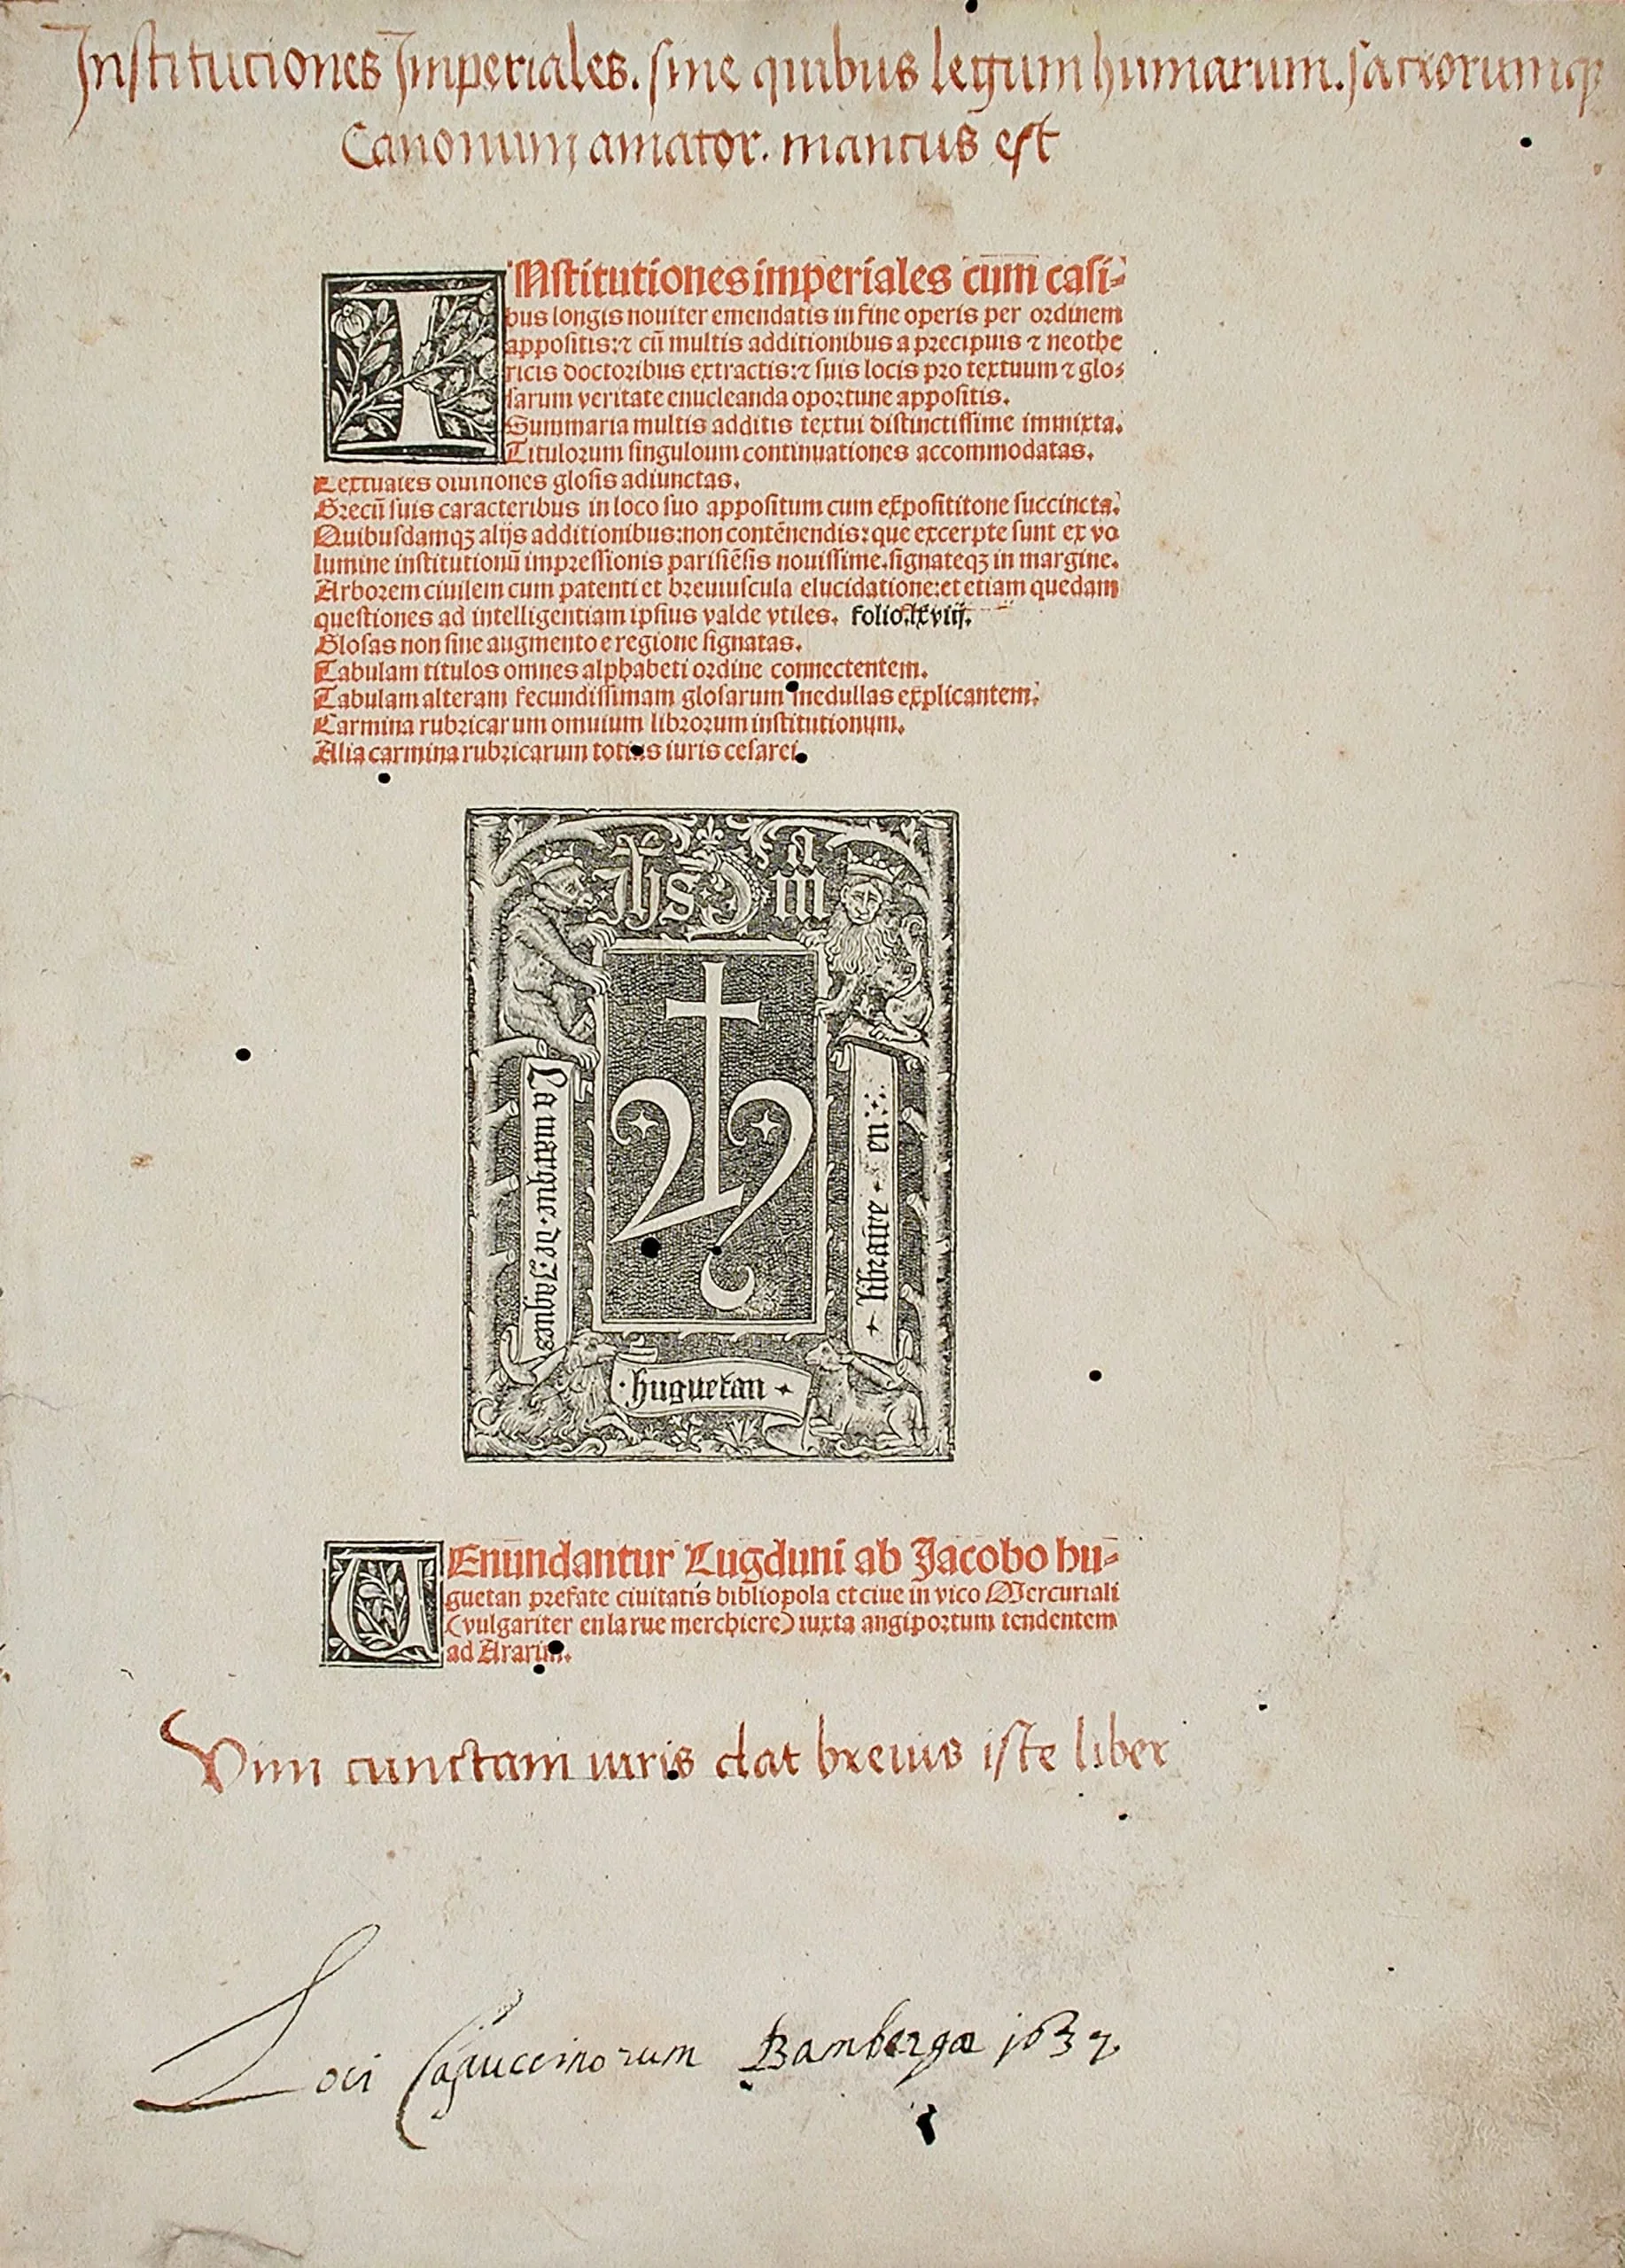 Institutiones Imperiales. sine quibus legum humarum. sacrorumqꝫ
Canonum amator. mancus est
INstitutiones imperiales cum casi⸗
bus longis nouiter emendatis in fine operis per ordinem
appositis:⁊ cũ multis additionibus a precipuis ⁊ neothe
ricis doctoribus extractis:⁊ suis locis pro textuum ⁊ glo⸗
sarum veritate enucleanda oportune appositis.
Summaria multis additis textui distinctissime immixta.
Titulorum singuloum continuationes accommodatas.
Textuales diuisiones glosis adiunctas.
Grecũ suis caracteribus in loco suo appositum cum expositione succincta.
Quibusdamqꝫ alijs additionibus:non contẽnendis:que excerpte sunt ex vo
lumine institutionũ impressionis parisiẽsis nouissime.signateqꝫ in margine.
Arborem ciuilem cum patenti et breuiuscula elucidatione:et etiam quedam
questiones ad intelligentiam ipsius valde vtiles. folio.lxviij.
Glosas non sine augmento e regione signatas.
Tabulam titulos omnes alphabeti ordine connectentem.
Tabulam alteram fecundissimam glosarum medullas explicantem.
Carmina rubricarum omuium librorum institutionum.
Alia carmina rubricarum totius iuris cesarei.
Jhs
ma
La marque de Jaques
huguetan
libraire en
VEnũndantur Lugduni ab Jacobo hu⸗
guetan prefate ciuitatis bibliopola et ciue in vico Mercuriali
(vulgariter en la rue merchiere) iuxta angiportum tendentem
ad Ararim.
Vim cunctam iuris dat breuis iste liber
Loci Capuccinorum Bambergæ 1637.